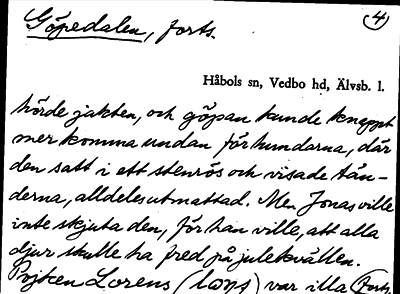 Göpedalen, forts.
4
Håbols sn, Vedbo hd, Älvsb. l.
hörde jakten, och göpan kunde knappt
mer komma undan för hundarna, där
den satt i ett stenrös och visade tän-
derna, alldeles utmattad. Men Jonas ville
inte skjuta den, för han ville, att alla
djur skulle ha fred på julekvällen.
Pojken Lorens (låns) var illa (Forts.